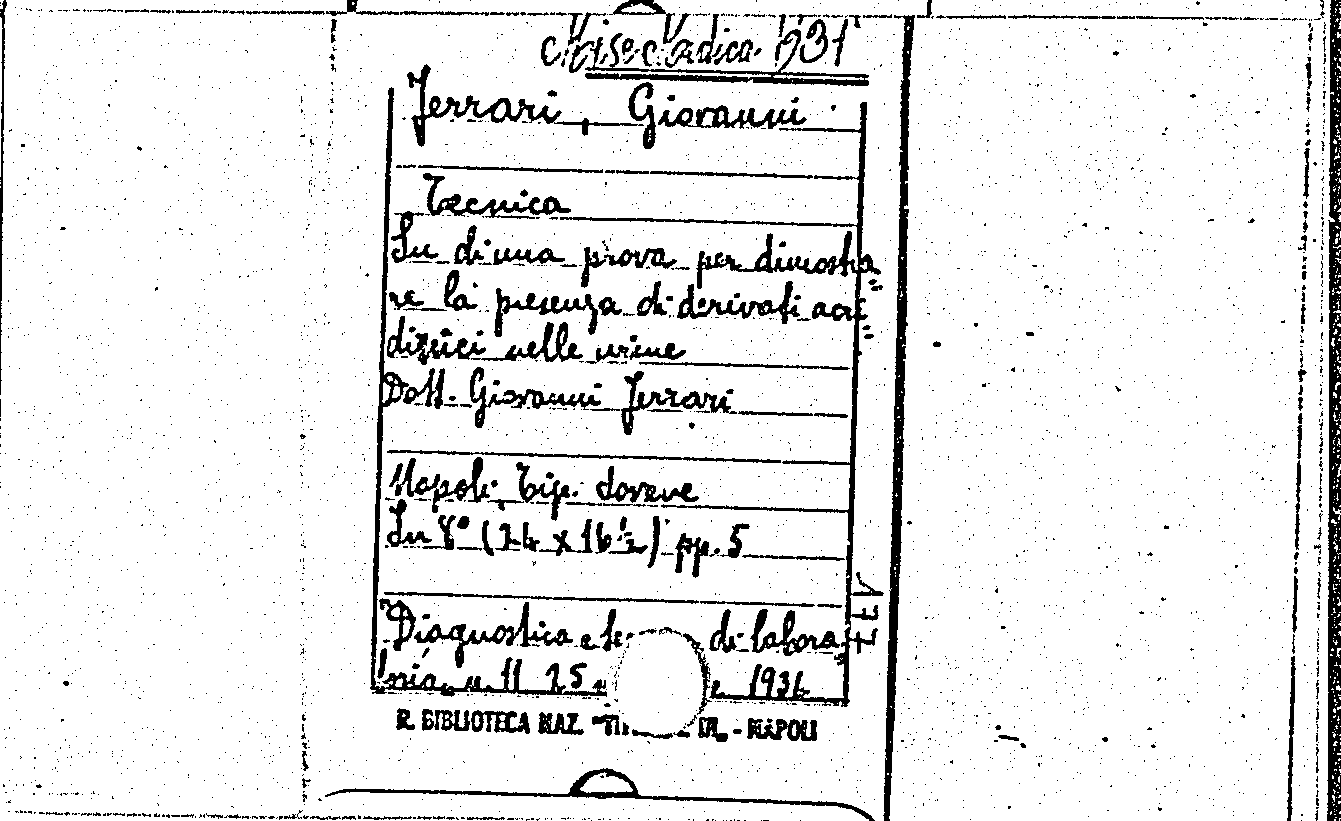 Misc. Medica. 931
Ferrari, Giovanni
Tecnica
Su di una prova per dimostra
re la presenza di derivati acri
dinici nelle urine
Dott. Giovanni Ferrari
Napoli Tip. Jovene
In 8° (24 x 16 ½) pp. 5
177
Diagnostica e di labora
n. 11 25 193
R. BIBLIOTECA NAZ. - NAPOLI